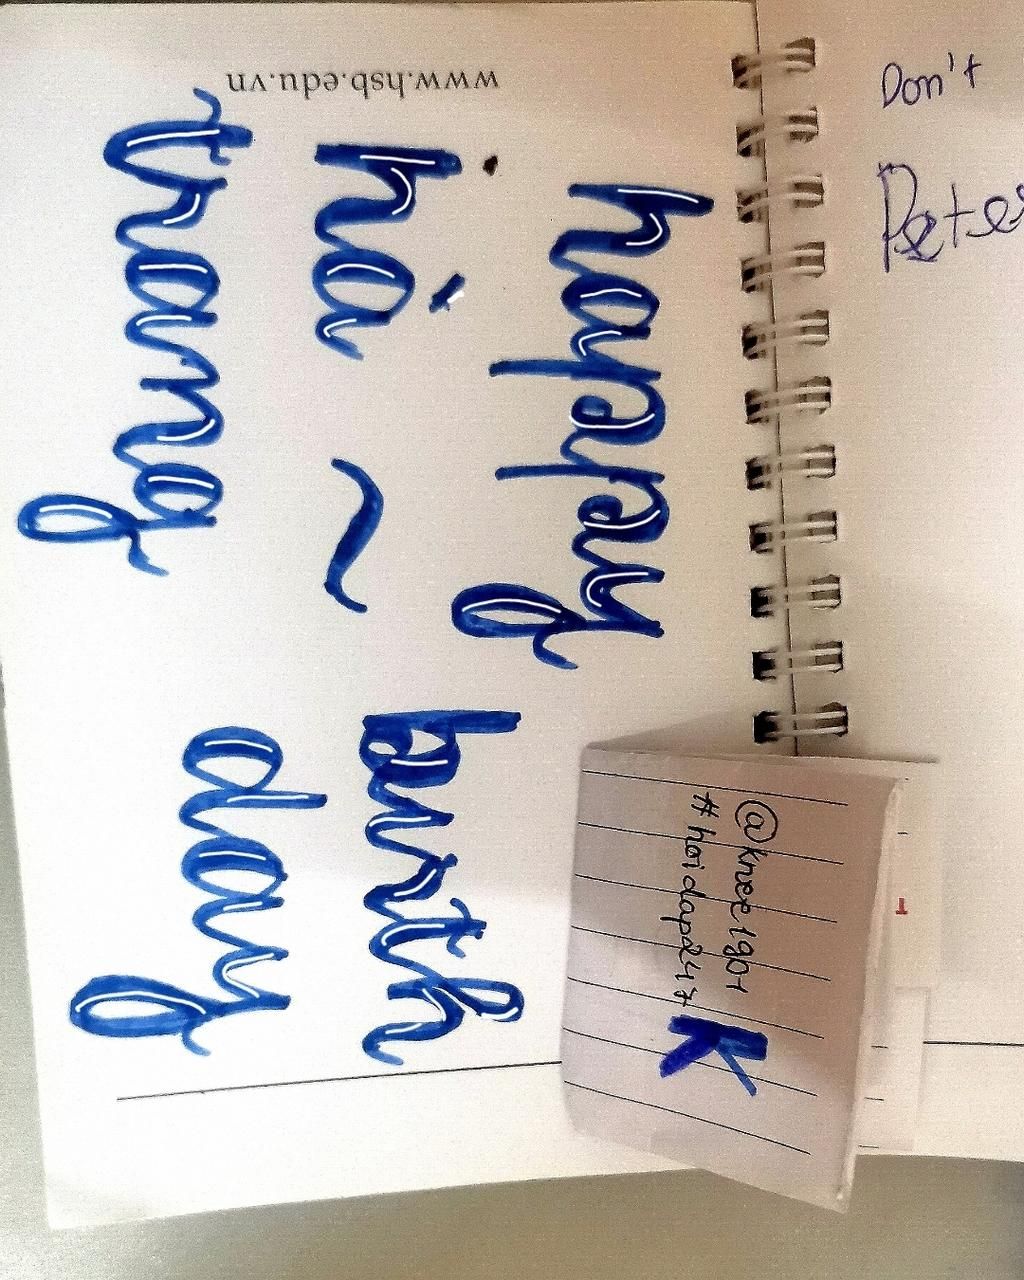 happy birth
hà ~ day
trang
@knee1901
#hoidap247
K
www.hsb.edu.vn
Don't
Peter